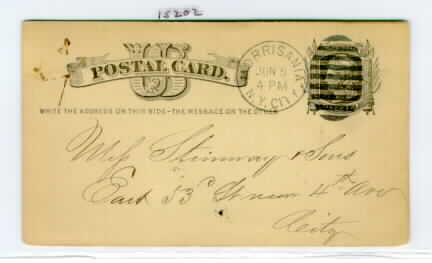 15202
U S
POSTAL CARD.
MORRISANIA
JUN 5
4 PM
N.Y. CITY
WRITE THE ADDRESS ON THIS SIDE-THE MESSAGE ON THE OTHER
Mess Steinway & Sons
East 53d St near 4th Ave
City